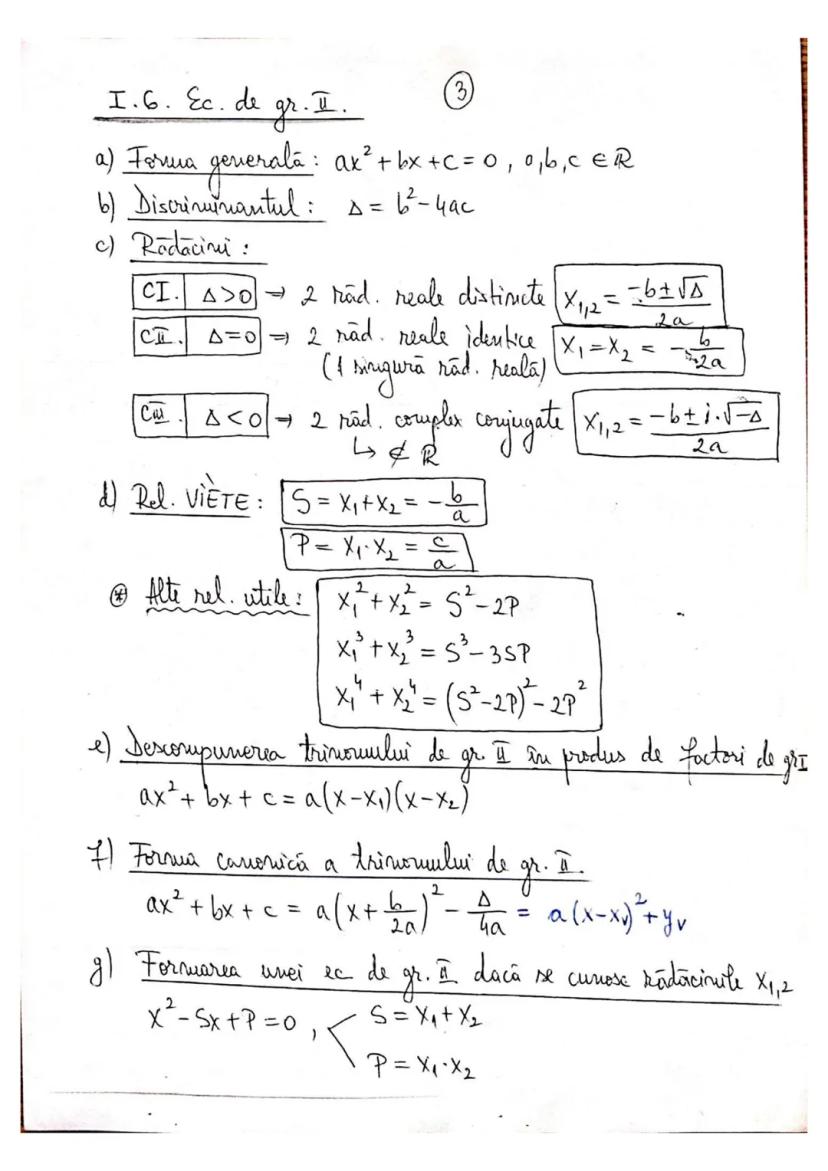 I.6. Ec. de gr. II. ③
a) Forma generală: ax² + bx + c = 0, a,b,c ∈ ℝ
b) Discriminantul: Δ = b² - 4ac
c) Rădăcini:
CI. Δ>0 → 2 răd. reale distincte x₁,₂ = (-b±√Δ)/2a
CII. Δ=0 → 2 răd. reale identice x₁=x₂ = -b/2a
(1 singură răd. reală)
CIII. Δ<0 → 2 răd. complex conjugate x₁,₂ = (-b±i·√-Δ)/2a
↳ ∉ ℝ
d) Rel. VIÈTE: S = x₁+x₂ = -b/a
P = x₁·x₂ = c/a
⊛ Alte rel. utile: x₁²+x₂² = S²-2P
x₁³+x₂³ = S³-3SP
x₁⁴+x₂⁴ = (S²-2P)²-2P²
e) Descompunerea trinomului de gr. II în produs de factori de gr I
ax²+bx+c = a(x-x₁)(x-x₂)
f) Forma canonică a trinomului de gr. II.
ax²+bx+c = a(x+b/2a)² - Δ/4a = a(x-xᵥ)²+yᵥ
g) Formarea unei ec de gr. II dacă se cunosc rădăcinile x₁,₂
x²-Sx+P=0, S = x₁+x₂
P = x₁·x₂